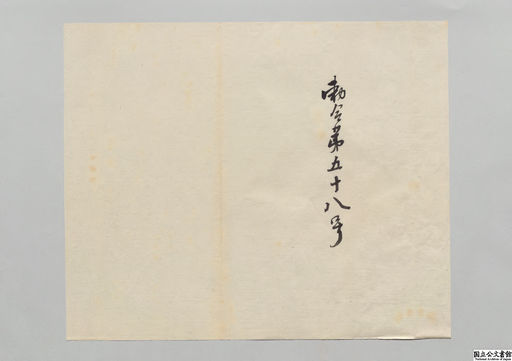 勅令第五十八号
国立公文書館
National Archives of Japan